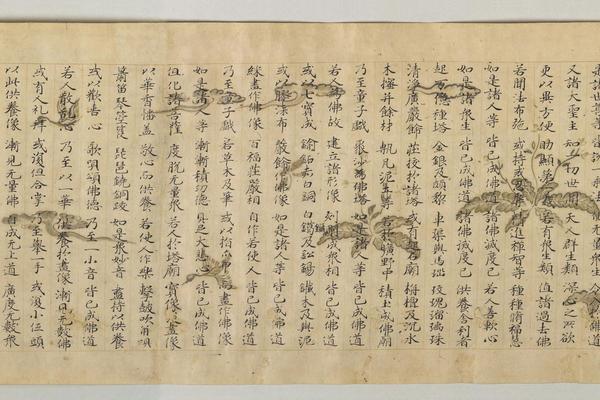 又諸大聖主 知一切世間 天人群生類 深心之所欲
更以異方便 助顯第一義 若有衆生類 值諸過去佛
若聞法布施 或持戒忍辱 精進禪智等 種種脩福慧
如是諸人等 皆已成佛道 諸佛滅度已 若人善軟心
如是諸衆生 皆已成佛道 諸佛滅度已 供養舍利者
起万億種塔 金銀及頗梨 車𤦲與馬瑙 玫瑰瑠璃珠
清淨廣嚴飾 莊挍於諸塔 或有起石廟 栴檀及沉水
木櫁并餘材 塼瓦泥土等 若於曠野中 積土成佛廟
乃至童子戲 聚沙為佛塔 如是諸人等 皆已成佛道
若人為佛故 建立諸形像 刻彫成衆相 皆已成佛道
或以七寶成 鍮鉐赤白銅 白鑞及鈆錫 鐵木及與泥
或以膠漆布 嚴飾作佛像 如是諸人等 皆已成佛道
綵畫作佛像 百福莊嚴相 自作若使人 皆已成佛道
乃至童子戲 若草木及筆 或以指爪甲 而畫作佛像
如是諸人等 漸漸積功德 具足大悲心 皆已成佛道
但化諸菩薩 度脫无量衆 若人於塔廟 寶像及畫像
以華香幡蓋 敬心而供養 若使人作樂 擊鼓吹角貝
簫笛琴箜篌 琵琶鐃銅鈸 如是衆妙音 盡持以供養
或以歡喜心 歌唄頌佛德 乃至一小音 皆已成佛道
若人散亂心 乃至以一華 供養於畫像 漸見无數佛
或有人礼拜 或復但合掌 乃至舉一手 或復小低頭
以此供養像 漸見无量佛 自成无上道 廣度无數衆